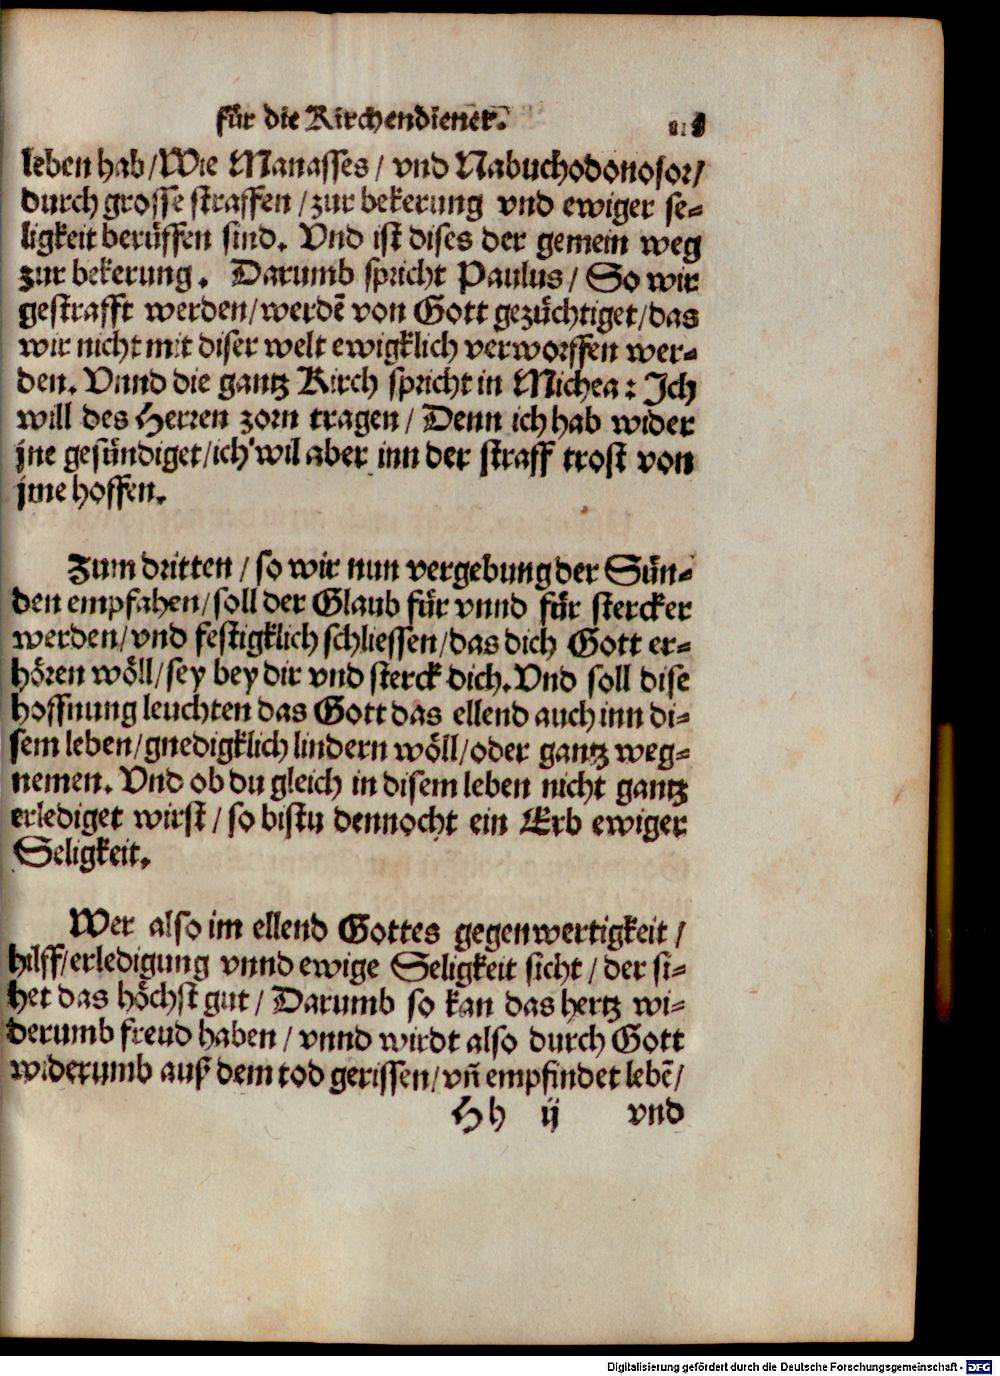 für die Kirchendiener.
leben hab/Wie Manasses/ vnd Nabuchodonosor/
durch grosse straffen/zur bekerung vnd ewiger se-
ligkeit berüffen sind. Vnd ist dises der gemein weg
zur bekerung. Darumb spricht Paulus/ So wir
gestrafft werden/werdẽ von Gott gezüchtiget/das
wir nicht mit diser welt ewigklich verworffen wer-
den. Vnnd die gantz Kirch spricht in Michea: Ich
will des Herren zorn tragen/ Denn ich hab wider
jne gesündiget/ich wil aber inn der straff trost von
jme hoffen.
Zum dritten/ so wir nun vergebung der Sün-
den empfahen/soll der Glaub für vnnd für stercker
werden/vnd festigklich schliessen/das dich Gott er-
hören wöll/sey bey dir vnd sterck dich. Vnd soll dise
hoffnung leuchten das Gott das ellend auch inn di-
sem leben/gnedigklich lindern wöll/oder gantz weg-
nemen. Vnd ob du gleich in disem leben nicht gantz
erlediget wirst/so bistu dennocht ein Erb ewiger
Seligkeit.
Wer also im ellend Gottes gegenwertigkeit/
hilff/erledigung vnnd ewige Seligkeit sicht/der si-
het das höchst gut/ Darumb so kan das hertz wi-
derumb freud haben/ vnnd wirdt also durch Gott
widerumb auß dem tod gerissen/vñ empfindet lebẽ/
Hh ij vnd
Digitalisierung gefördert durch die Deutsche Forschungsgemeinschaft - DFG